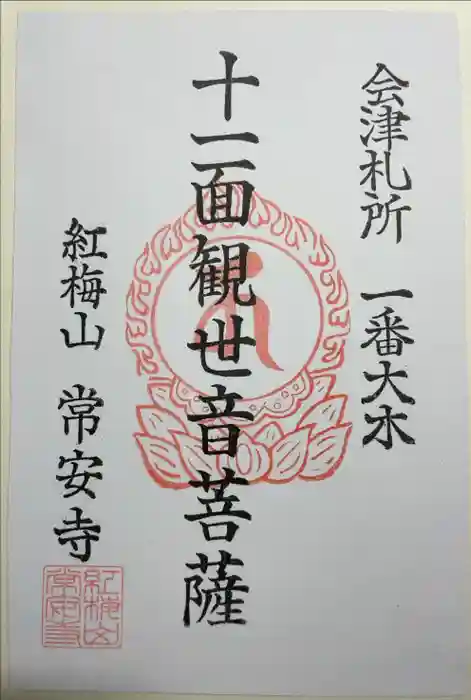 会津札所 一番大木
十一面観世音菩薩
紅梅山 常安寺
紅梅山
常安寺